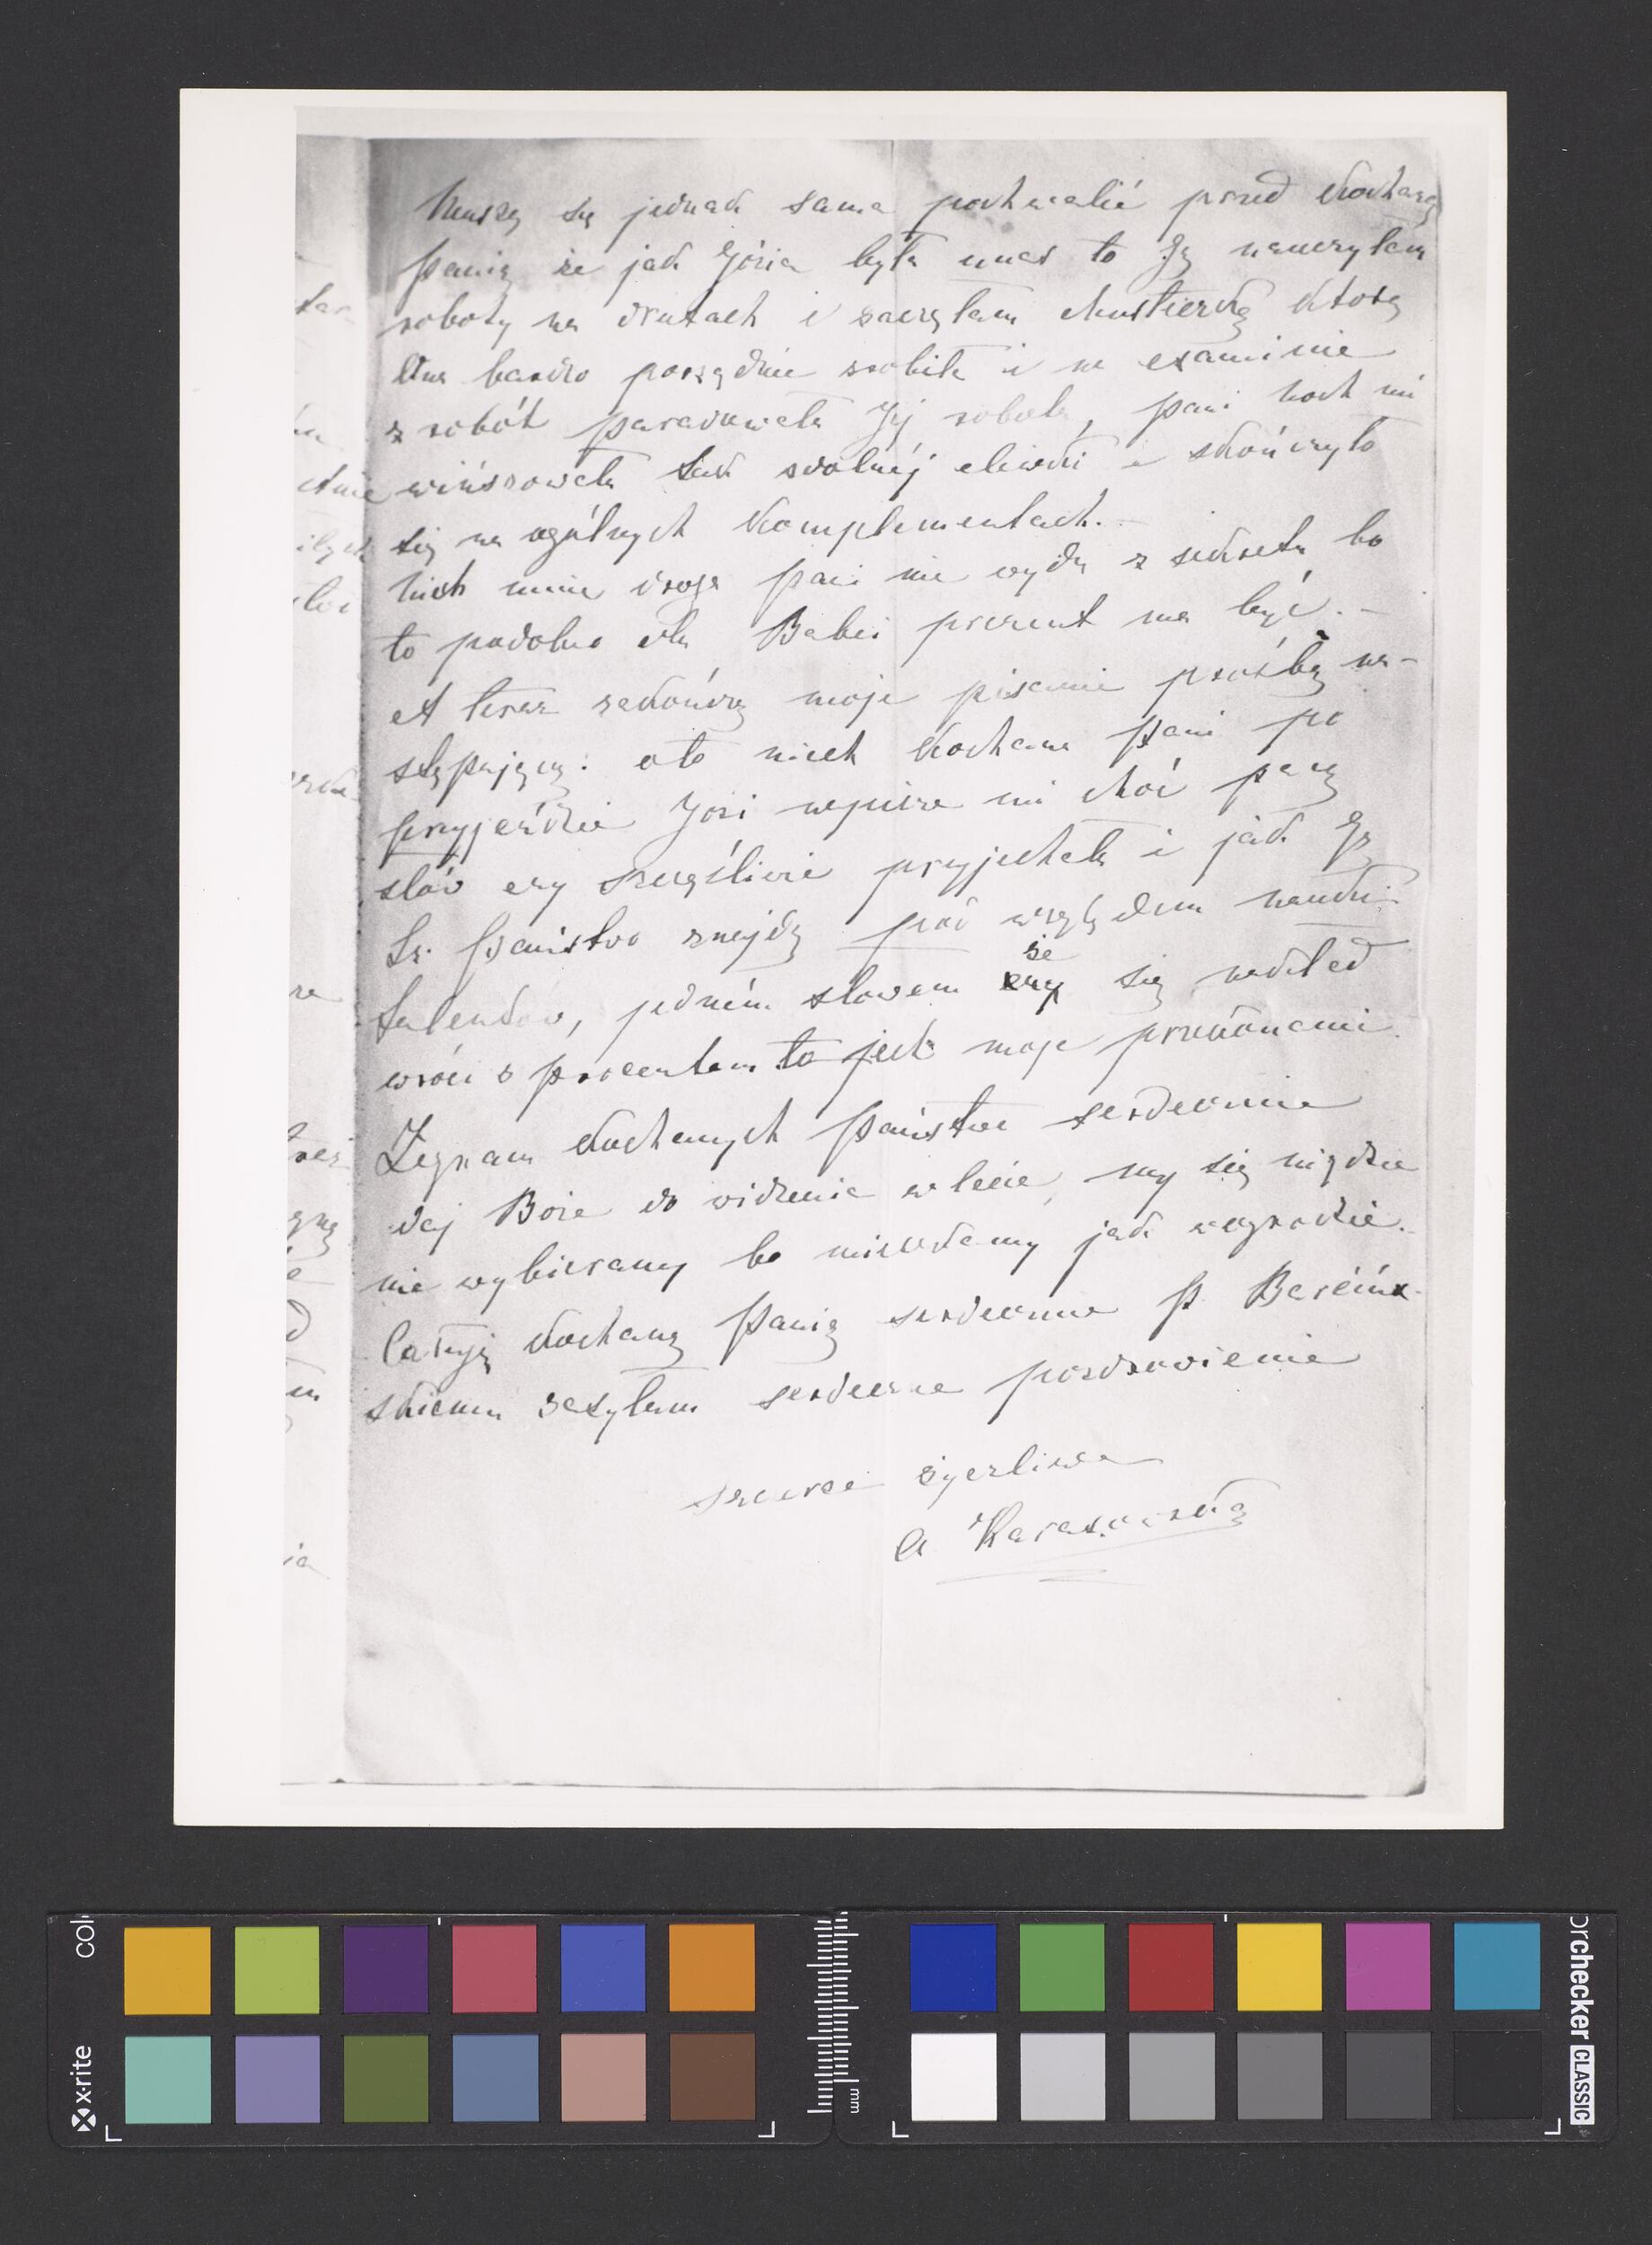 Muszę się jednak sama pochwalić przed Kochaną
Panią że jak Józia była unas to Ją nauczyłam
roboty na drutach i zaczęłam chusteczkę którą
Ona bardzo porządnie zrobiła i na examinie
z robót paradowała Jej robota, pani Koch mi
winszowała tak zdolnéj elewki i skończyło
się na ogólnych Komplementach. -
Niech mnie droga Pani nie wyda z sekretu bo
to podobno dla Babci prezent ma być. -
A teraz zakończę moje pisanie prośbą na-
stępującą: oto niech Kochana Pani po
przyjeździe Józi napisze mi choć parę
słów czy szczęśliwie przyjechała i jak Ją
Sz. Państwo znajdą pod względem nauki
talentów, jedném słowem czy że się nakład
wróci z procentem to jest moje przekonanie
Żegnam Kochanych Państwa serdecznie
daj Boże do widzenia w lecie, my się nigdzie
nie wybieramy bo mieszkamy jak w ogrodzie. -
Całuję Kochaną Panią serdecznie P.
skiemu zasyłam serdeczne pozdrowienie
szczerze życzliwa
A
tar-
etnie
ia
x-rite
col
mm
orchecker CLASSIC